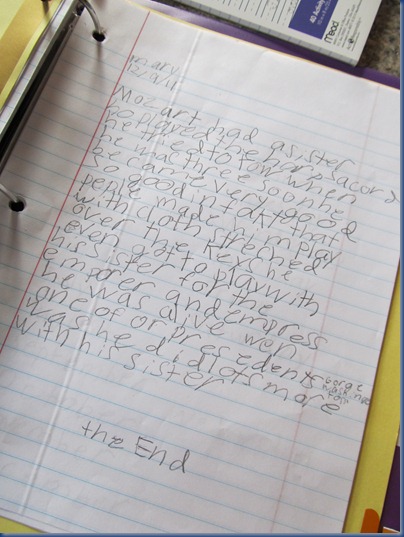 Mead
Mozart had a sister
ho played the harpsacord
he tried to tow when
he was three soon he
be came very good
so good in fakt that
peple made him play
with cloth streched
over the keys he
even got to play with
his sister for the
emporer and empress
he was alive won
one of or presedents George
washington
was he did lots more
with his sister
the End